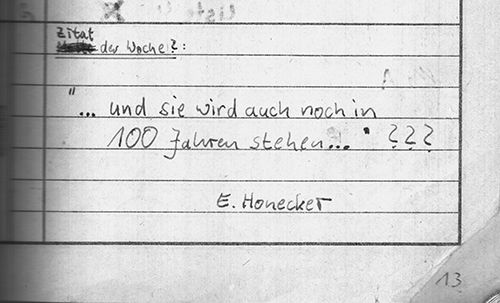 Zitat
der Woche?:
"... und sie wird auch noch in
100 Jahren stehen..." ???
E. Honecker
13